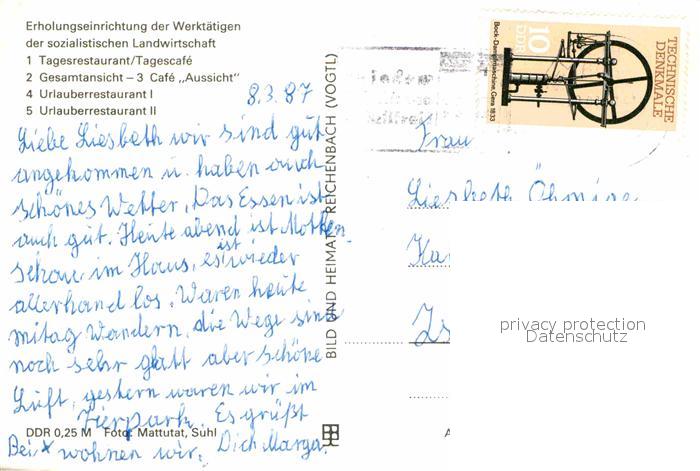 Erholungseinrichtung der Werktätigen
der sozialistischen Landwirtschaft
1 Tagesrestaurant/Tagescafé
2 Gesamtansicht – 3 Café „Aussicht"
4 Urlauberrestaurant I
5 Urlauberrestaurant II
8.3.87
Liebe Liesbeth wir sind gut
angekommen u. haben auch
schönes Wetter, Das Essen ist
auch gut. Heute abend ist Motten
schau im Haus, es ist wieder
allerhand los, Waren heute
mitag Wandern, die Wege sind
noch sehr glatt aber schöne
Luft, gestern waren wir im
Tierpark. Es grüßt
Bei x wohnen wir. Dich Marga.
DDR 0,25 M Foto: Mattutat, Suhl
BILD UND HEIMAT REICHENBACH (VOGTL)
10
DDR
Bock-Dampfmaschine, Gera 1833
TECHNISCHE
DENKMALE
Frau
Liesbeth
privacy protection
Datenschutz